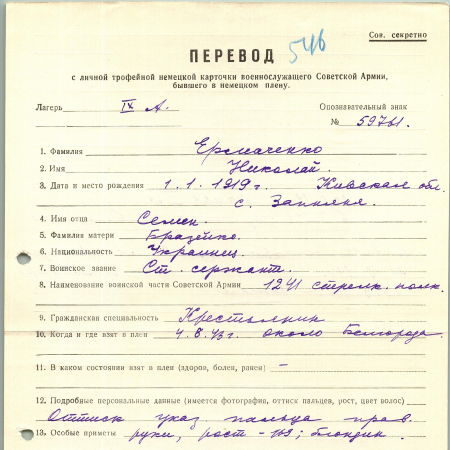 Сов. секретно
546
ПЕРЕВОД
с личной трофейной немецкой карточки военнослужащего Советской Армии,
бывшего в немецком плену.
Лагерь IX А. Опознавательный знак
№ 59761.
1. Фамилия Ермаченко
2. Имя Николай.
3. Дата и место рождения 1.1.1919г. Киевская обл.
с.
4. Имя отца Семен.
5. Фамилия матери
6. Национальность Украинец.
7. Воинское звание Ст. сержант.
8. Наименование воинской части Советской Армии 1241 стрелк. полк.
9. Гражданская специальность Крестьянин
10. Когда и где взят в плен 4.8.43г. около Белгорода.
11. В каком состоянии взят в плен (здоров, болен, ранен) –
12. Подробные персональные данные (имеется фотография, оттиск пальцев, рост, цвет волос)
Оттиск указ пальца прав.
13. Особые приметы руки, рост - 169; блондин.